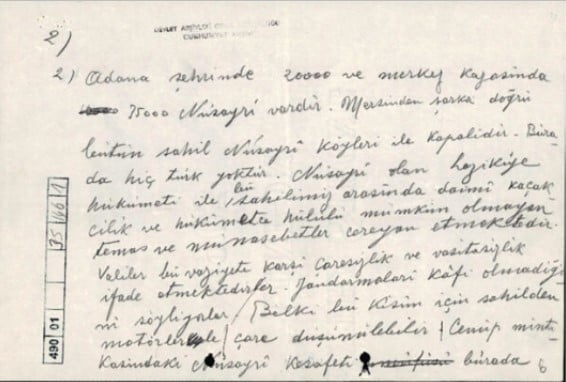 DEVLET ARŞİVLERİ GENEL
CUMHURİYET
2)
2) Adana şehrinde 20000 ve merkez kazasinda
75000 Nüsayrî vardir. Mersinden şarka doğru
bütün sahil Nüsayrî Köyleri ile kapalidir. Bura-
da hiç türk yoktur. Nüsayrî olan Lazikiye
hükümeti ile bu sahilimiz arasinda daimî kaçak-
cilik ve hükümetce hulûlü mümkün olmayan
temas ve münasebetler cereyan etmektedir.
Valiler bu vaziyete karsi caresizlik ve vasitasizlik
ifade etmektedirler. Jandarmalari kâfi olmadiği-
ni söyliyorlar / Belki bu kisim için sahilden
motörlerle / çare düşünülebilir / Cenup minta-
kasindaki Nüsayrî kesafeti nüfusu burada
6
490 01